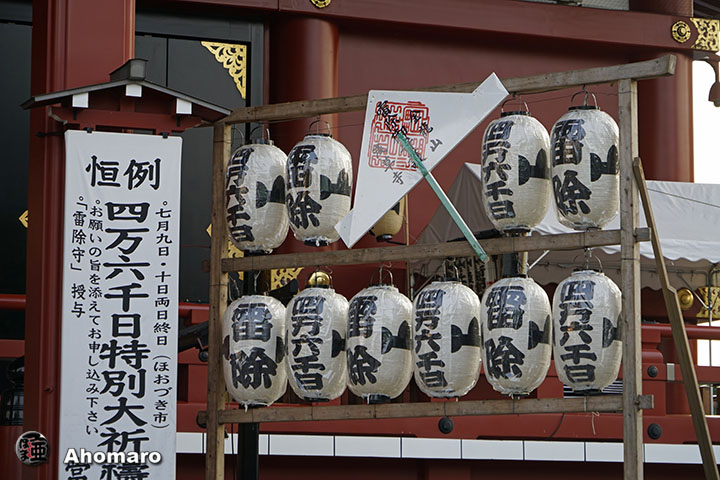 恒例
七月九日・十日両日終日(ほおづき市)
四万六千日特別大祈禱
お願いの旨を添えてお申し込み下さい
「雷除守」授与
四万六千
雷除
四万六千日
雷除
雷除
四万六千日
雷除
四万六千日
雷除
四万六千日
Ahomaro